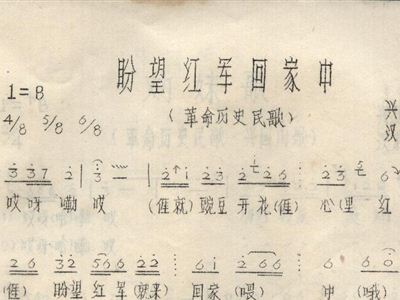 盼望红军回家中
1=B
(革命历史民歌)
兴
4/8 5/8 6/8
汉
3 3 7 2 | 3 2 1 2 3 2 2 6 2 3 6
哎呀嘞哎 (倨就) 豌豆开花(倨) 心里红
2 6 3 2 5 6 6 2 2 6 1 2 6 6 6 1
(倨) 盼望红军(就来) 回家(喂) 中(哦)